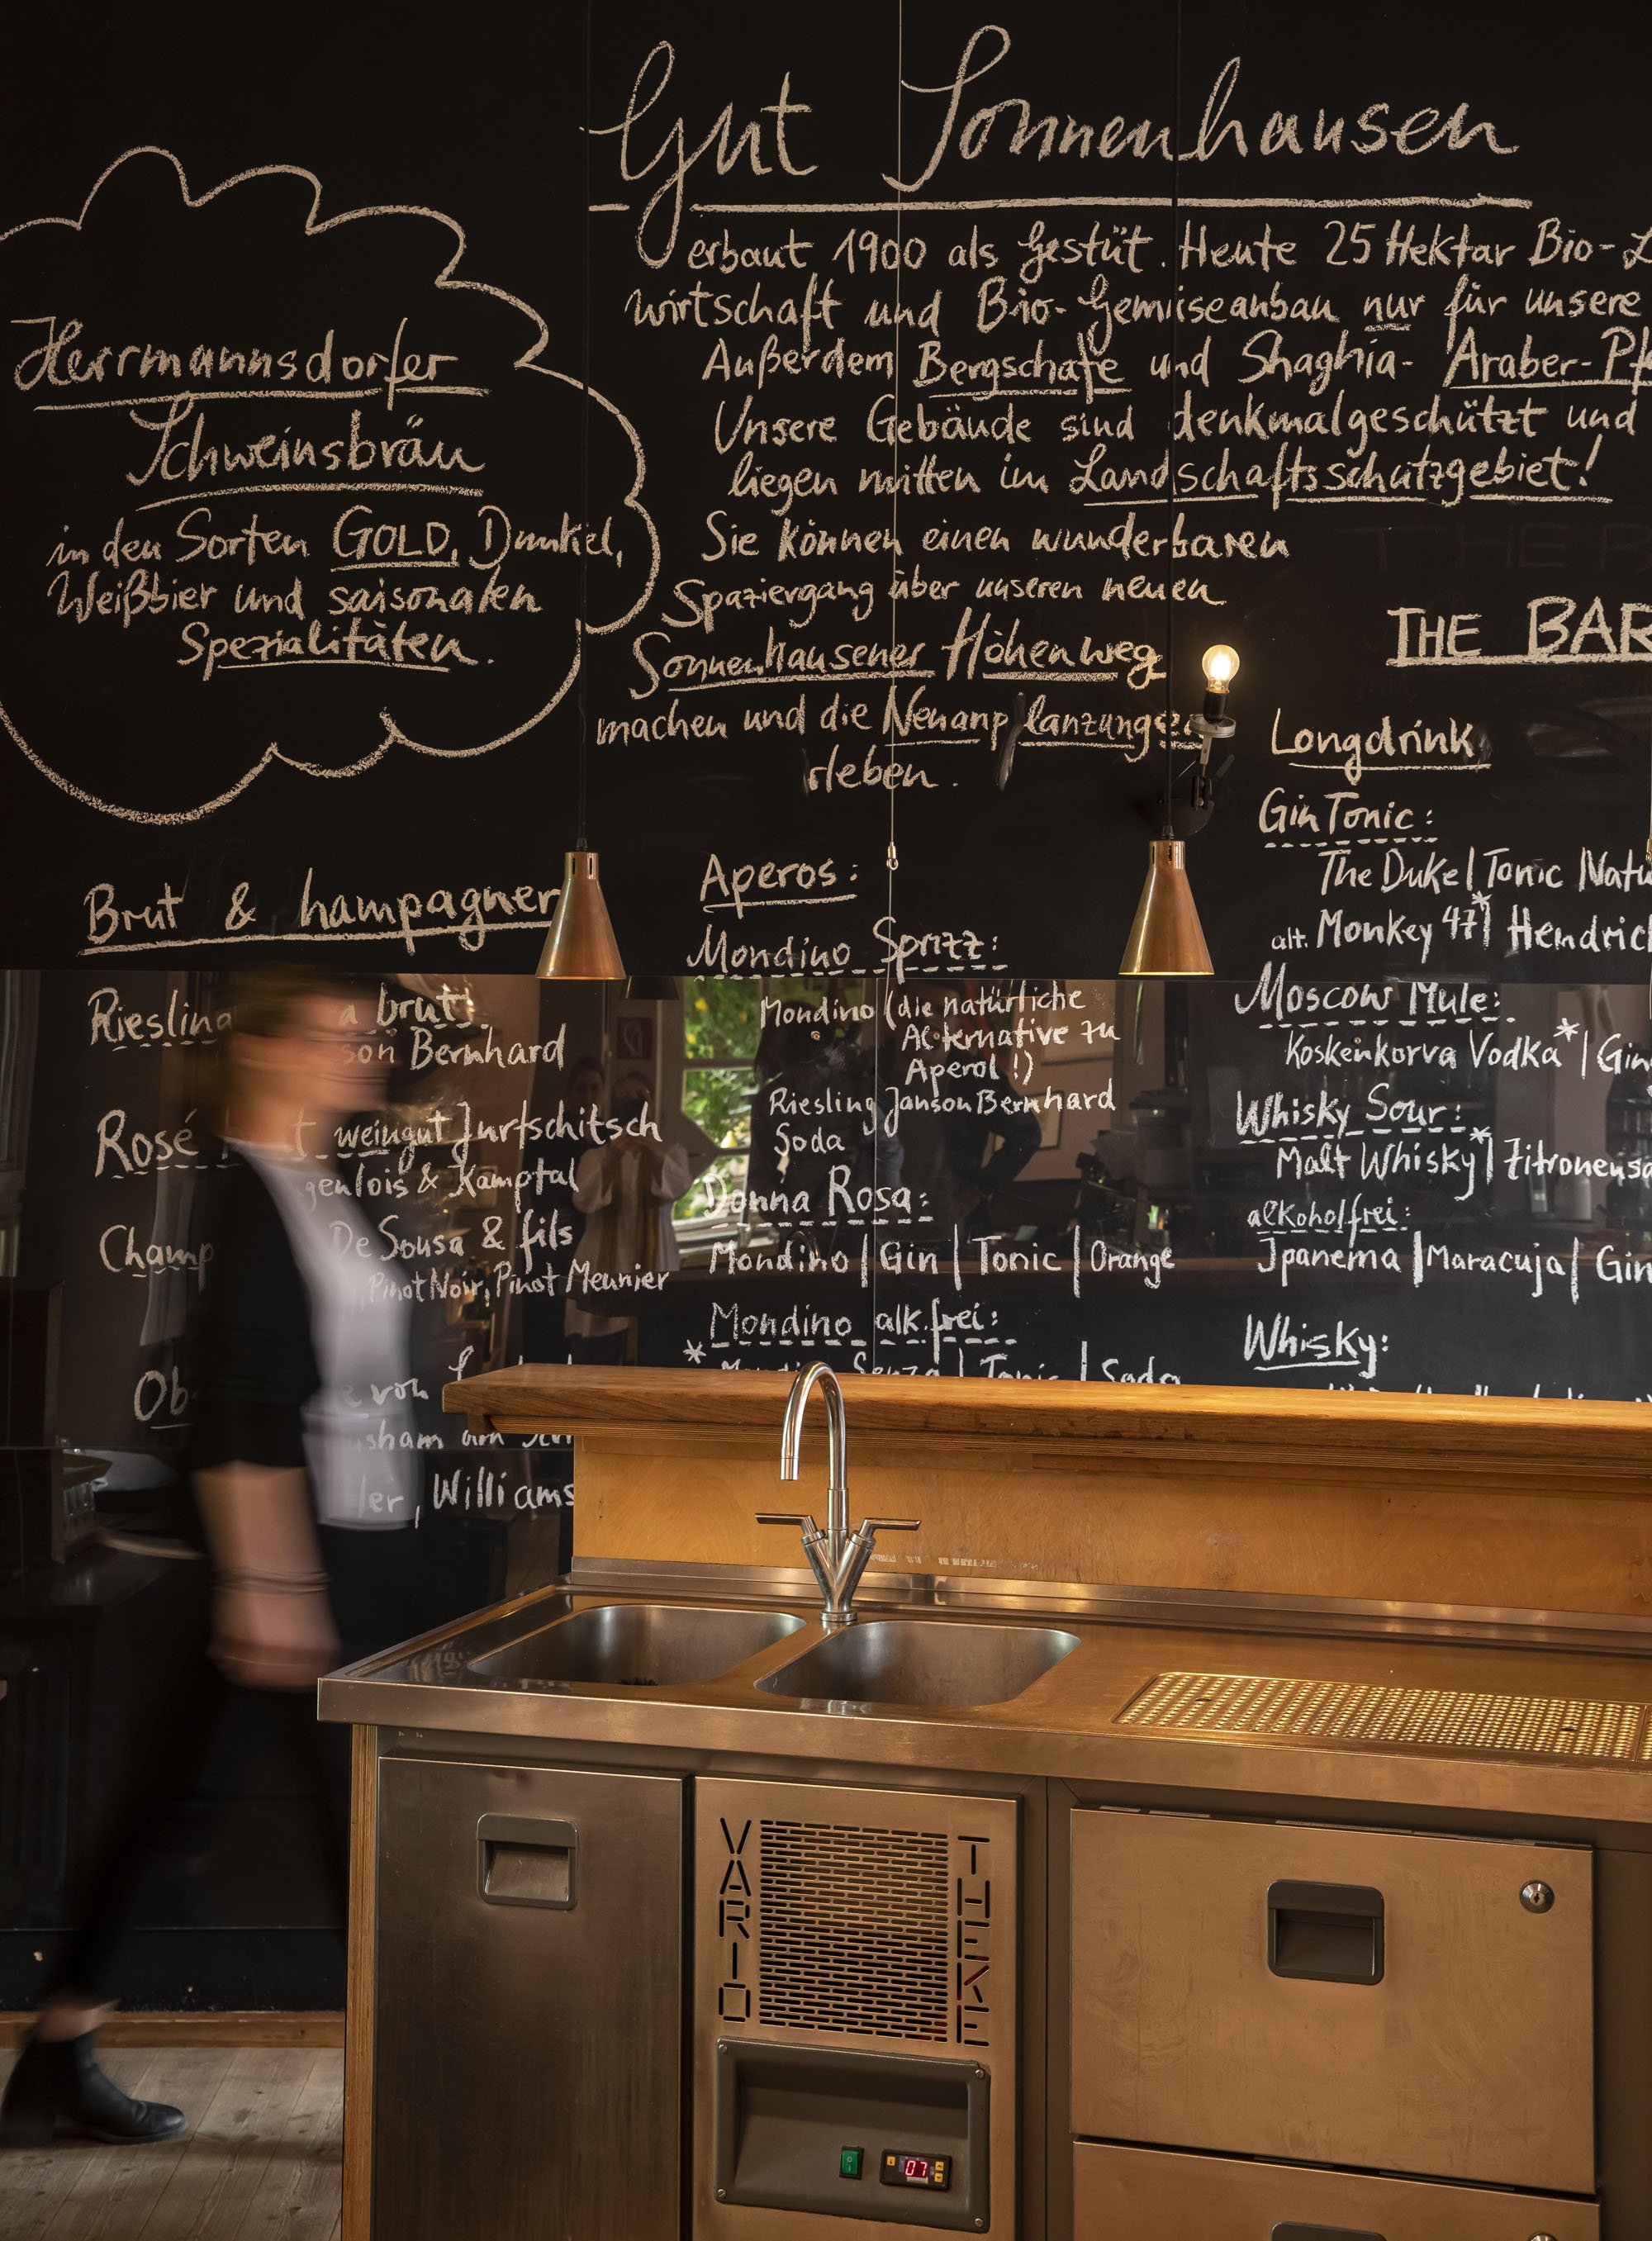 Gut Sonnenhausen
erbaut 1900 als Gestüt. Heute 25 Hektar Bio-L
wirtschaft und Bio-Gemüseanbau nur für unsere
Außerdem Bergschafe und Shaghia- Araber-Pf
Unsere Gebäude sind denkmalgeschützt und
liegen mitten im Landschaftsschutzgebiet!
Sie können einen wunderbaren
Spaziergang über unseren neuen
Sonnenhausener Höhenweg
machen und die Neuanp lanzungen
rleben.
Herrmannsdorfer
Schweinsbräu
in den Sorten GOLD, Dunkel,
Weißbier und saisonalen
Spezialitäten.
Brut & hampagner
Riesling a brut
son Bernhard
Rosé t weingut Jurtschitsch
genlois & Kamptal
Champ De Sousa & fils
, Pinot Noir, Pinot Meunier
Ob e von
sham am
ler, Williams
Aperos:
Mondino Sprizz:
Mondino (die natürliche
Alternative zu
Aperol!)
Riesling Janson Bernhard
Soda
Donna Rosa:
Mondino | Gin | Tonic | Orange
Mondino alk.frei:
* Mondino Senza | Tonic | Soda
THE BAR
Longdrink
Gin Tonic:
The Duke | Tonic | Natu
alt. Monkey 47* | Hendric
Moscow Mule:
Koskenkorva Vodka* | Gin
Whisky Sour:
Malt Whisky* | Zitronensa
alkoholfrei:
Ipanema | Maracuja | Gin
Whisky:
VARIO
THEKE
07